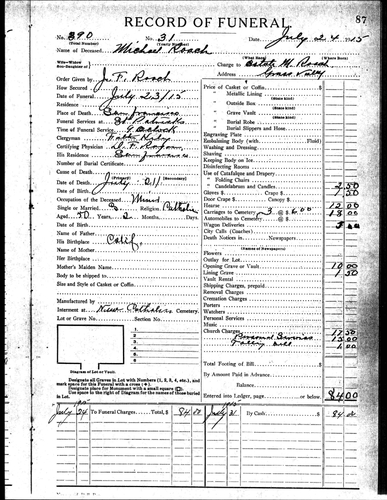 RECORD OF FUNERAL.
87
No. 390 No. 31 Date July 24 1915
(Total Number) (Yearly Number)
Name of Deceased Michael Roach
Charge to Estate M. Roach
Address Grass Valley
Order Given by J. F. Roach
How Secured
Date of Funeral July 23/15
Residence
Place of Death San Francisco
Funeral Services at St Patricks
Time of Funeral Service 9 oclock
Clergyman
Certifying Physician
His Residence San Francisco
Number of Burial Certificate
Cause of Death
Date of Death July 21
Date of Birth
Occupation of the Deceased Miner
Single or Married S Religion Catholic
Aged 50 Years 2 Months Days
Date of Birth
Name of Father
His Birthplace Calif.
Name of Mother
Her Birthplace
Mother's Maiden Name
Body to be shipped to
Size and Style of Casket or Coffin
Manufactured by
Interment at New Catholic Cemetery.
Lot or Grave No. Section No.
Diagram of Lot or Vault.
Designate all Graves in Lot with Numbers (1, 2, 3, 4, etc.), and
mark space for this Funeral with a cross (+).
Designate place for Monument with a small square (□).
Use space to the right of Diagram for names of those buried
in Lot.
July 24 To Funeral Charges Total, $ 84 00
Price of Casket or Coffin
" Metallic Lining
" Outside Box
" Grave Vault
" Burial Robe
" Burial Slippers and Hose
Engraving Plate
Embalming Body (with Fluid)
Washing and Dressing
Shaving
Keeping Body on Ice
Disinfecting Rooms
Use of Catafalque and Drapery
" Folding Chairs
" Candelabrum and Candles 2 50
Gloves $ Crape $ 50
Door Crape Candles $
Hearse 12 00
Carriages to Cemetery 3 @ 6.00 18 00
Automobiles to Cemetery @ $
Wagon Deliveries
City Calls (Coaches)
Death Notices in Newspapers
(Names of Newspapers)
Flowers
Outlay for Lot
Opening Grave or Vault 10 00
Lining Grave 1 50
Vault Rental
Shipping Charges, prepaid
Removal Charges
Cremation Charges
Porters
Watchers
Personal Services
Music
Church Charges 17 50
Personal Services 15 00
1 00
Total Footing of Bill
By Amount Paid in Advance
Balance
Entered into Ledger, page or below $84.00
July 31 By Cash $ 84 00